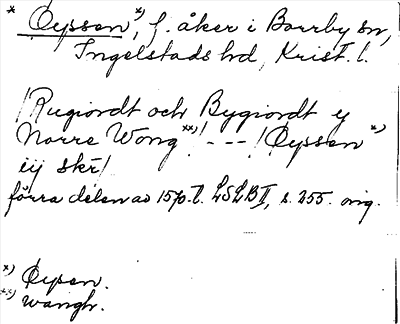 * Øyssen *), f. åker i Borrby sn,
Ingelstads hd, Krist. l.
/Rugiordt och Bygiordt ij
Norre Wong **)/ --- /Øyssen *)
iij skr/
förra delen av 1570-t. LSLB II, s. 255. orig.
*) Øysen.
**) wangh.